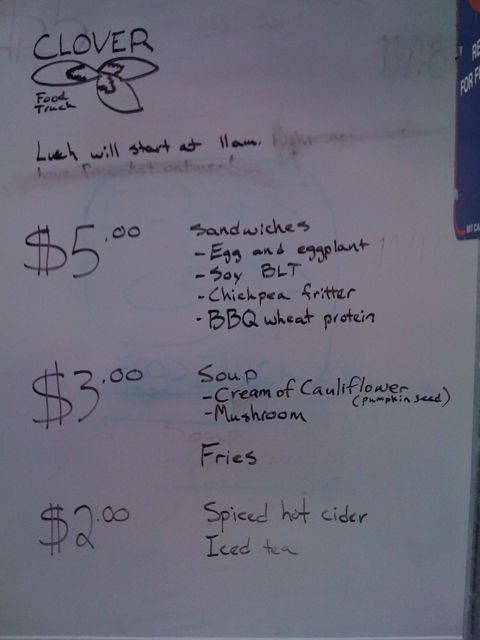 CLOVER
Food
Truck
Luch will start at 11am.
$5.00
Sandwiches
- Egg and eggplant
- Soy BLT
- Chickpea fritter
- BBQ wheat protein
$3.00
Soup
- Cream of Cauliflower
(pumpkin seed)
- Mushroom
Fries
$2.00
Spiced hot cider
Iced tea